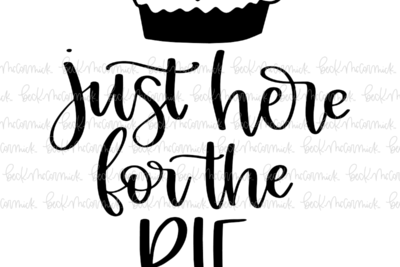 just here
for the
PIE